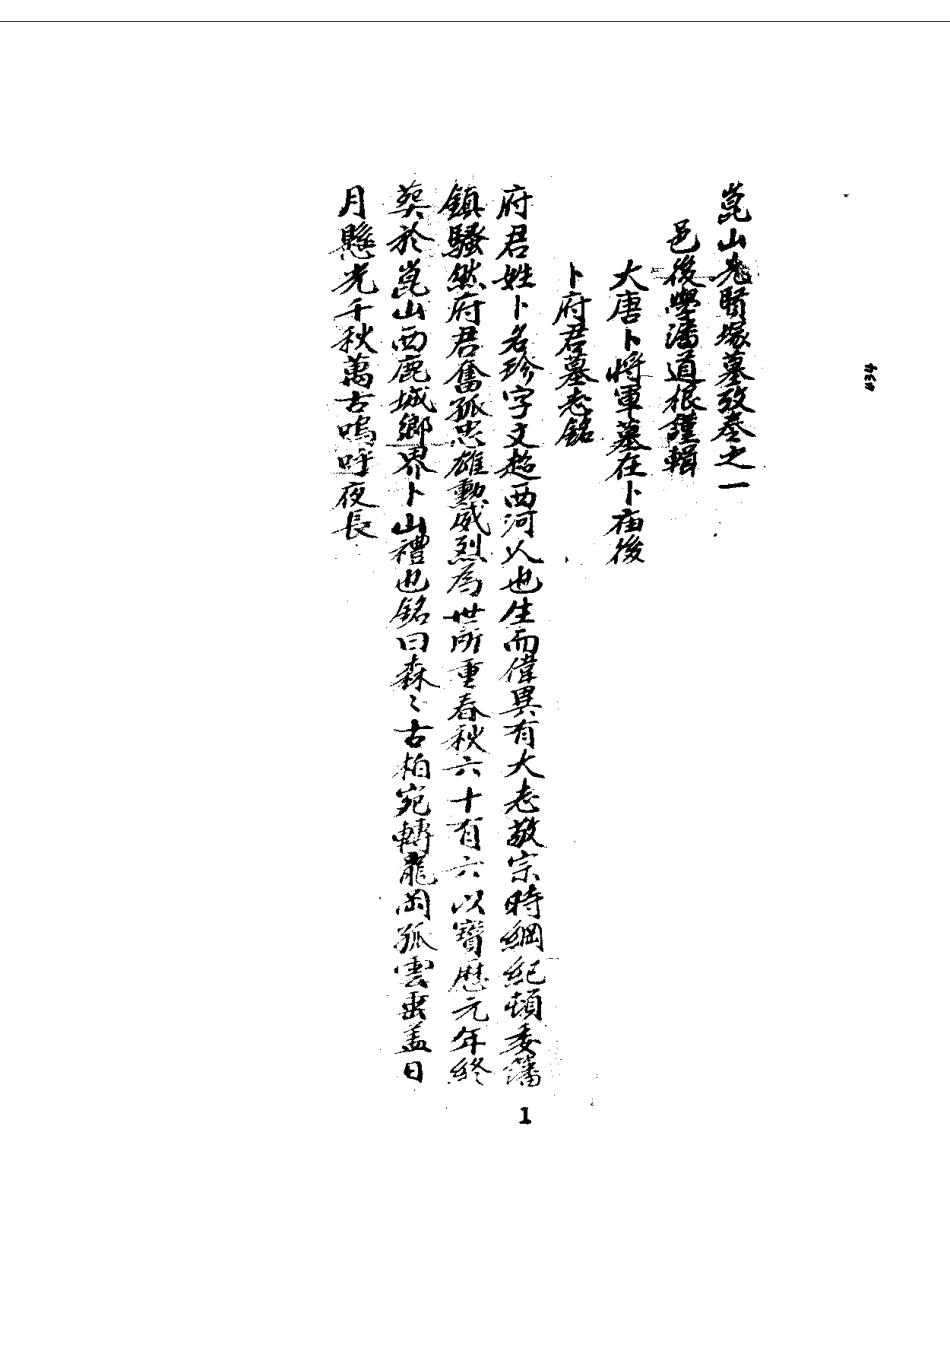 崑山先賢塚墓攷卷之一
邑後學潘道根謹輯
大唐卜將軍墓在卜庙後
卜府君墓志銘
府君姓卜名珍字文超西河人也生而偉異有大志敬宗時綱紀頓委藩
鎮騷然府君奮孤忠雄勳威烈為世所重春秋六十有六以寶歷元年終
葬於崑山西鹿城鄉界卜山禮也銘曰森〻古柏宛轉龍岡孤雲垂盖日
月懸光千秋萬古嗚呼夜長
1